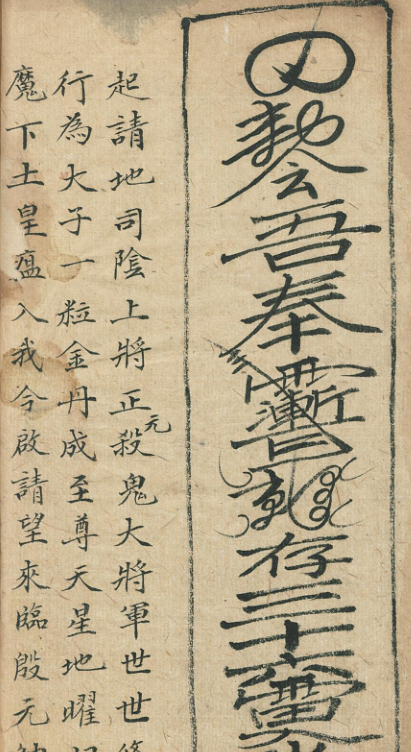 吾奉存三十六
起請地司陰上將正元殺鬼大將軍世世
行為大子一粒金丹成至尊天星地曜
魔下土皇瘟入我今啟請望來臨殷元